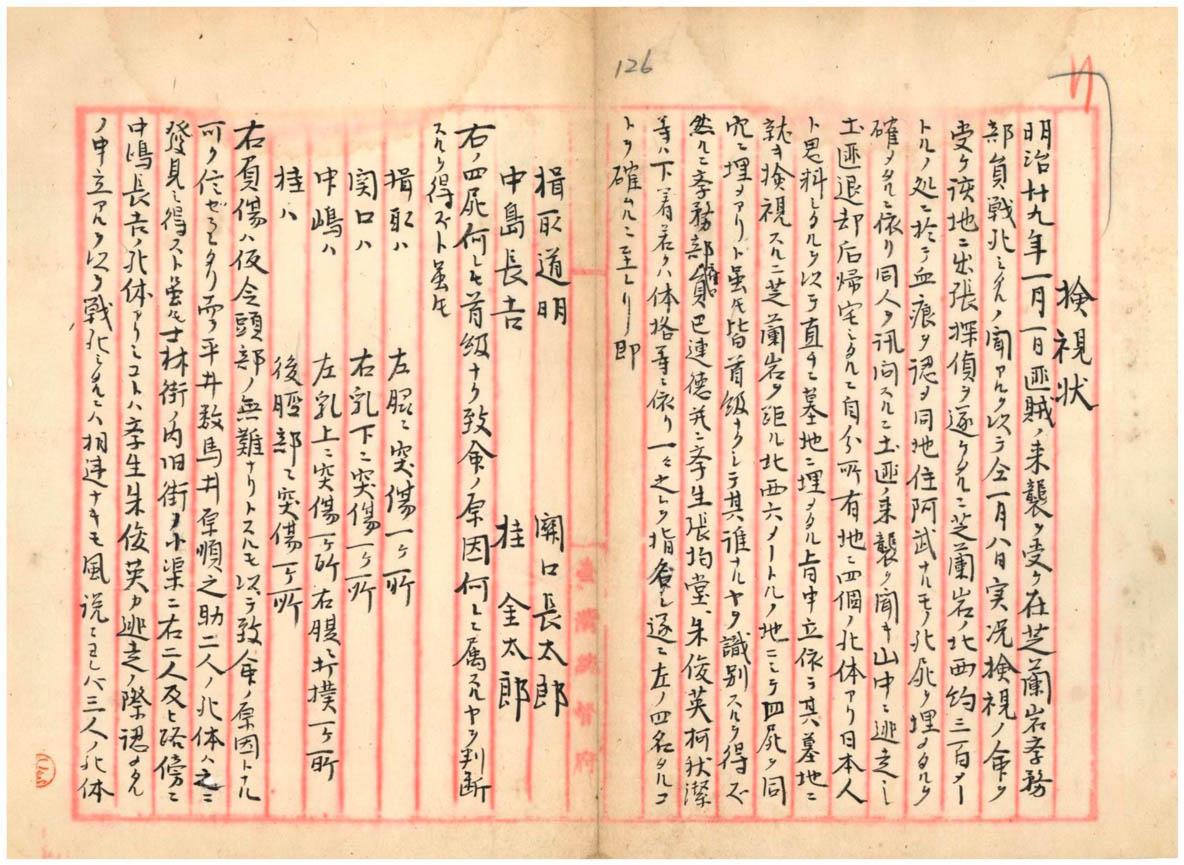 126
検視状
明治廿九年一月一日匪賊ノ来襲ヲ受ケ在芝蘭岩学務
部員戦死シタルノ聞アルヲ以テ仝一月八日実况検視ノ命ヲ
受ケ該地ニ出張探偵ヲ遂ケタルニ芝蘭岩ノ北西約三百メー
トルノ処ニ於テ血痕ヲ認メ同地住阿武ナルモノ死屍ヲ埋メタルヿ
確メタルニ依リ同人ヲ訊問スルニ土匪来襲ヲ聞キ山中ニ逃走シ
土匪退却后帰宅シタルニ自分所有地ニ四個ノ死体アリ日本人
ト思料シタルヲ以テ直チニ墓地ニ埋メタル上申立依テ其墓地ニ
就キ検視スルニ芝蘭岩ヲ距ル北西六メートルノ地ニシテ四屍ヲ同
穴ニ埋メアリト虽モ皆首級ナクシテ其誰ナルヤヲ識別スルヲ得ズ
然ルニ学務部員巴連徳并ニ学生張均堂、朱俊英柯秋潔
等ハ下着若クハ体格等ニ依リ一々之レヲ指名シ遂ニ左ノ四名タルコ
トヲ確ムルニ至レリ即
楫取道明 関口長太郎
中島長吉 桂金太郎
右ノ四屍何レモ首級ナク致命ノ原因何レニ属スルヤヲ判断
スルヲ得ズト虽モ
楫取ハ 左腿ニ突傷一ヶ所
関口ハ 右乳下ニ突傷一ヶ所
中嶋ハ 左乳上ニ突傷一ヶ所右腹ニ打撲一ヶ所
桂ハ 後脛部ニ突傷一ヶ所
右負傷ハ仮令頭部ノ無難ナリトスルモ以テ致命ノ原因トナル
可ク信ゼラレタリ而テ平井数馬井原順之助二人ノ死体ハ之ニ
発見シ得スト虽モ士林街ノ内旧街ノ小渠ニ右二人及ヒ路傍ニ
中嶋長吉ノ死体アリシコトハ学生朱俊英カ逃走ノ際認メタル
ノ申立アルヲ以テ戦死シタルハ相違ナキモ風説ニヨレハ三人ノ死体
臺灣總督府